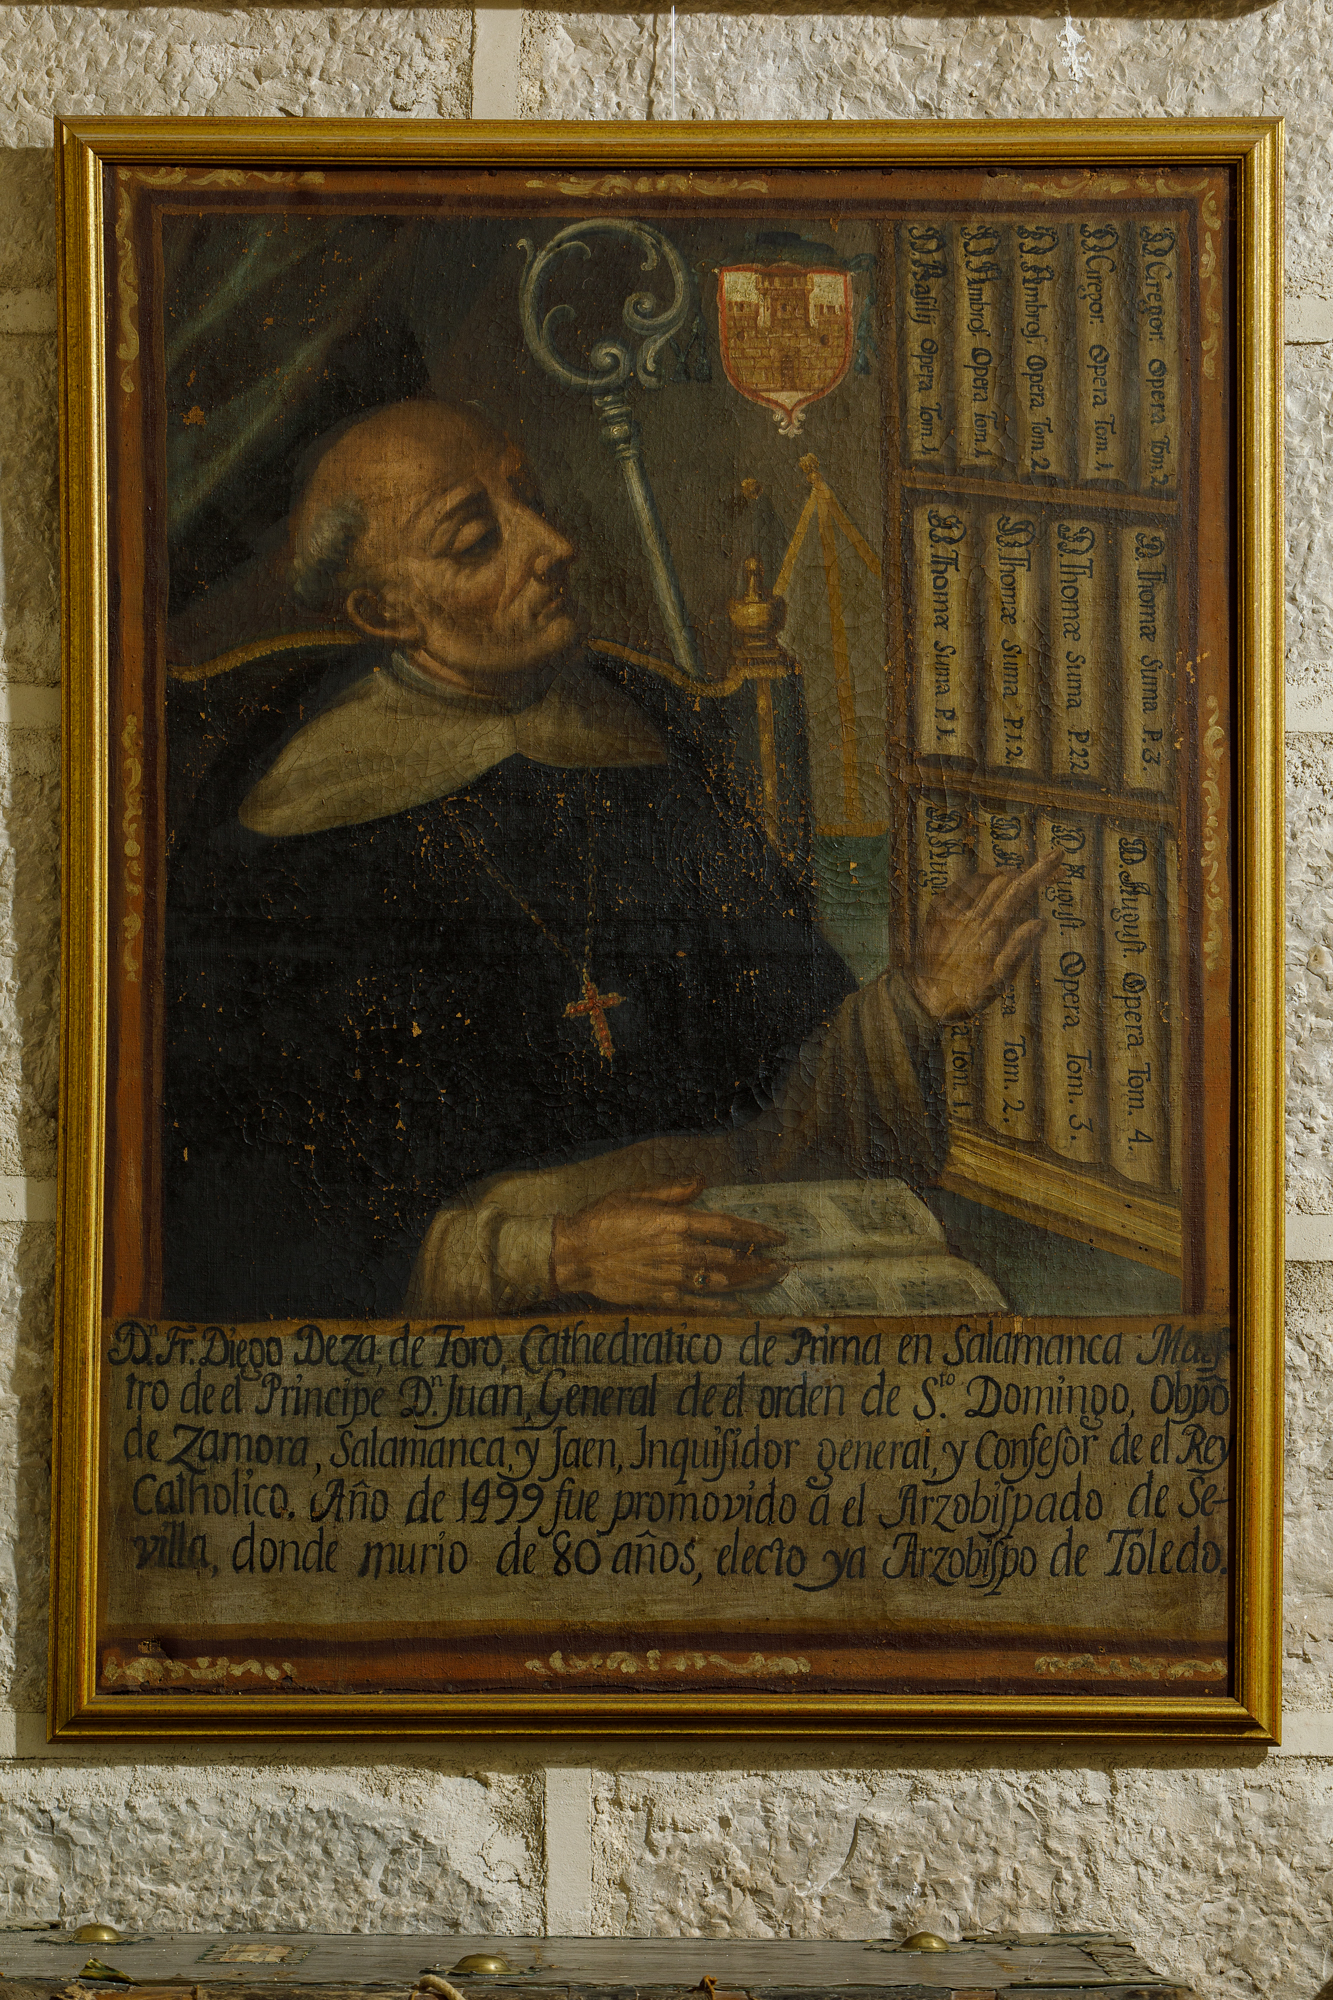 D. Basilij Opera Tom. 1
D. Ambros. Opera Tom. 1
D. Ambros. Opera Tom. 2
D. Gregor. Opera Tom. 1
D. Gregor. Opera Tom. 2
D. Thomæ Suma P. 1.
D. Thomæ Suma P. 1.2.
D. Thomæ Suma P. 22
D. Thomæ Suma P. 3.
D. Augu Tom. 1.
D. A era Tom. 2.
D. August. Opera Tom. 3.
D. August. Opera Tom. 4.
Dn. Fr. Diego Deza, de Toro, Cathedratico de Prima en Salamanca Maes-
tro de el Principe Dn. Juan, General de el orden de Sto. Domingo, Obpô
de Zamora, Salamanca, y Jaen, Inquisidor general, y Confesor de el Rey
Catholico. Año de 1499 fue promovido a el Arzobispado de Se-
villa, donde murio de 80 años, electo ya Arzobispo de Toledo.